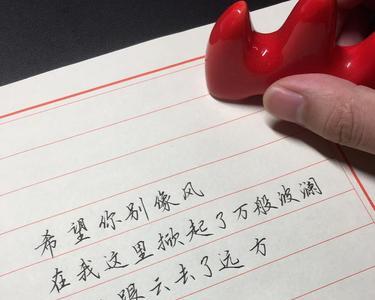 希望你别像风
在我这里掀起了万般波澜
跟云去了远方